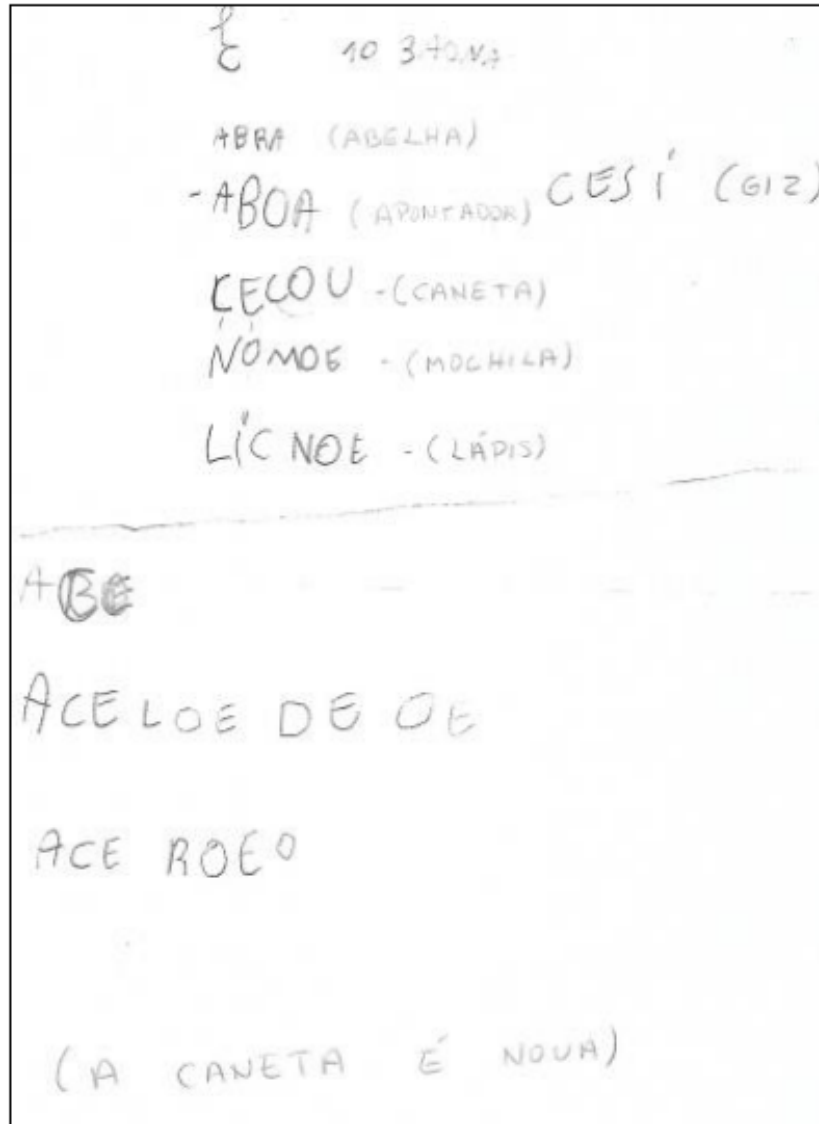 ABRA (ABELHA)
-ABOA (APONTADOR) CESÍ (GIZ)
CECOU -(CANETA)
NOMOE -(MOCHILA)
LÍCNOE -(LÁPIS)
ABE
ACELOE DE OE
ACE ROEO
(A CANETA É NOVA)